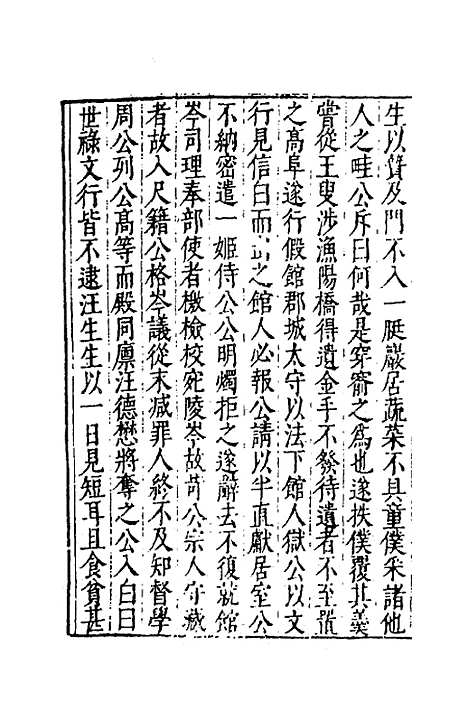 生以贄及門不入一脡嚴居蔬菜不具童僕采諸他
人之畦公斥曰何哉是穿窬之為也遂抶僕覆其羹
嘗從王叟涉漁陽橋得遺金手不發待遺者不至置
之高阜遂行假館郡城太守以法下館人獄公以文
行見信白而出之館人必報公請以半直獻居室公
不納密遣一姬侍公公明燭拒之遂辭去不復就館
岑司理奉部使者檄檢校宛陵岑故苛公宗人守藏
者故入尺籍公格岑議從末减罪人終不及知督學
周公列公高等而殿同廪汪德懋將奪之公入白曰
世祿文行皆不逮汪生生以一日見短耳且食貧甚